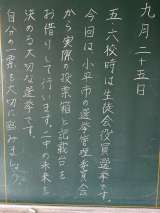 九月二十五日
五、六校時は生徒会役員選挙です。
今回は小平市の選挙管理委員会
から実際の投票箱と記載台を
お借りして行います。二中の未来を
決める大切な選挙です。
自分の一票を大切に